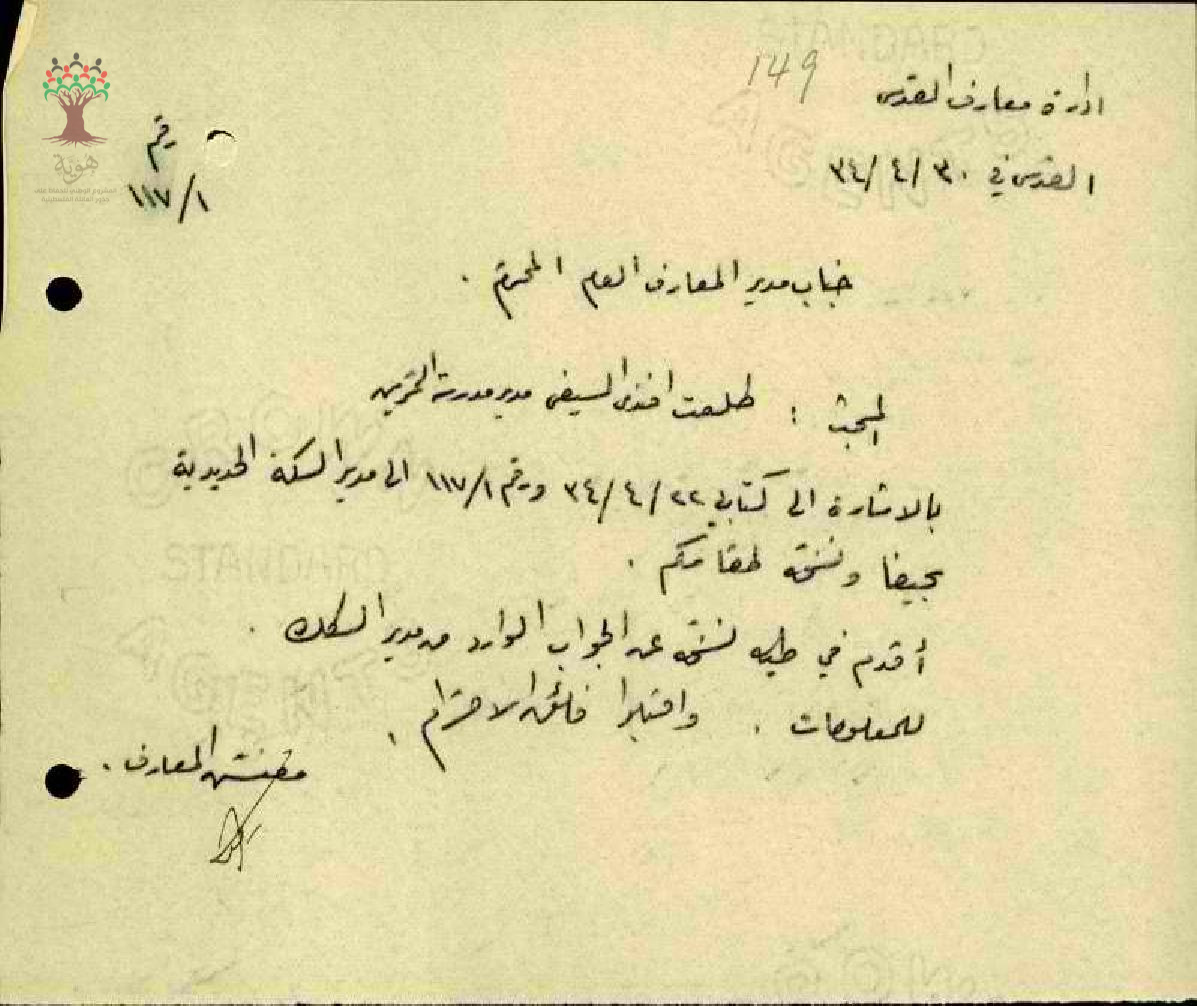 149
ادارة معارف القدس
القدس في ٣٠/٤/٣٤
رقم
١١٧/١
هوية
المشروع الوطني للحفاظ على
جذور العائلة الفلسطينية
جناب مدير المعارف العام المحترم .
المبحث : طلعت افندي السيفي مدير مدرسة
بالاشارة الى كتابي ٢٢/٤/٣٤ ورقم ١١٧/١ الى مدير السكة الحديدية
بحيفا ونسخة لمقامكم .
أقدم في طيه نسخة عن الجواب الوارد من مدير السكك .
للمعلومات . واقبلوا فائق الاحترام .
مفتش المعارف .
STANDARD